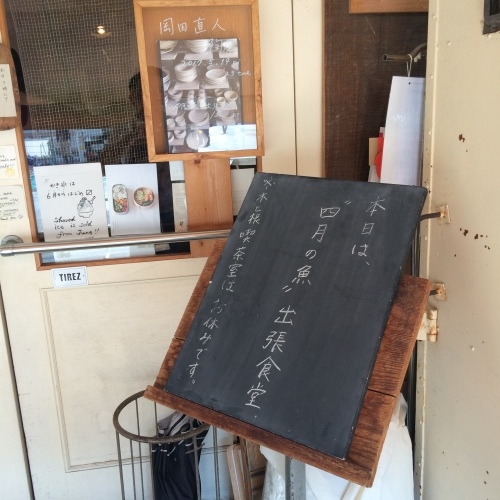 本日は、
"四月の魚"出張食堂.
※木と根 喫茶室は、お休みです。
岡田直人
かき氷は
6月からはじめ
Shaved
ice is sold
from June!!
TIREZ